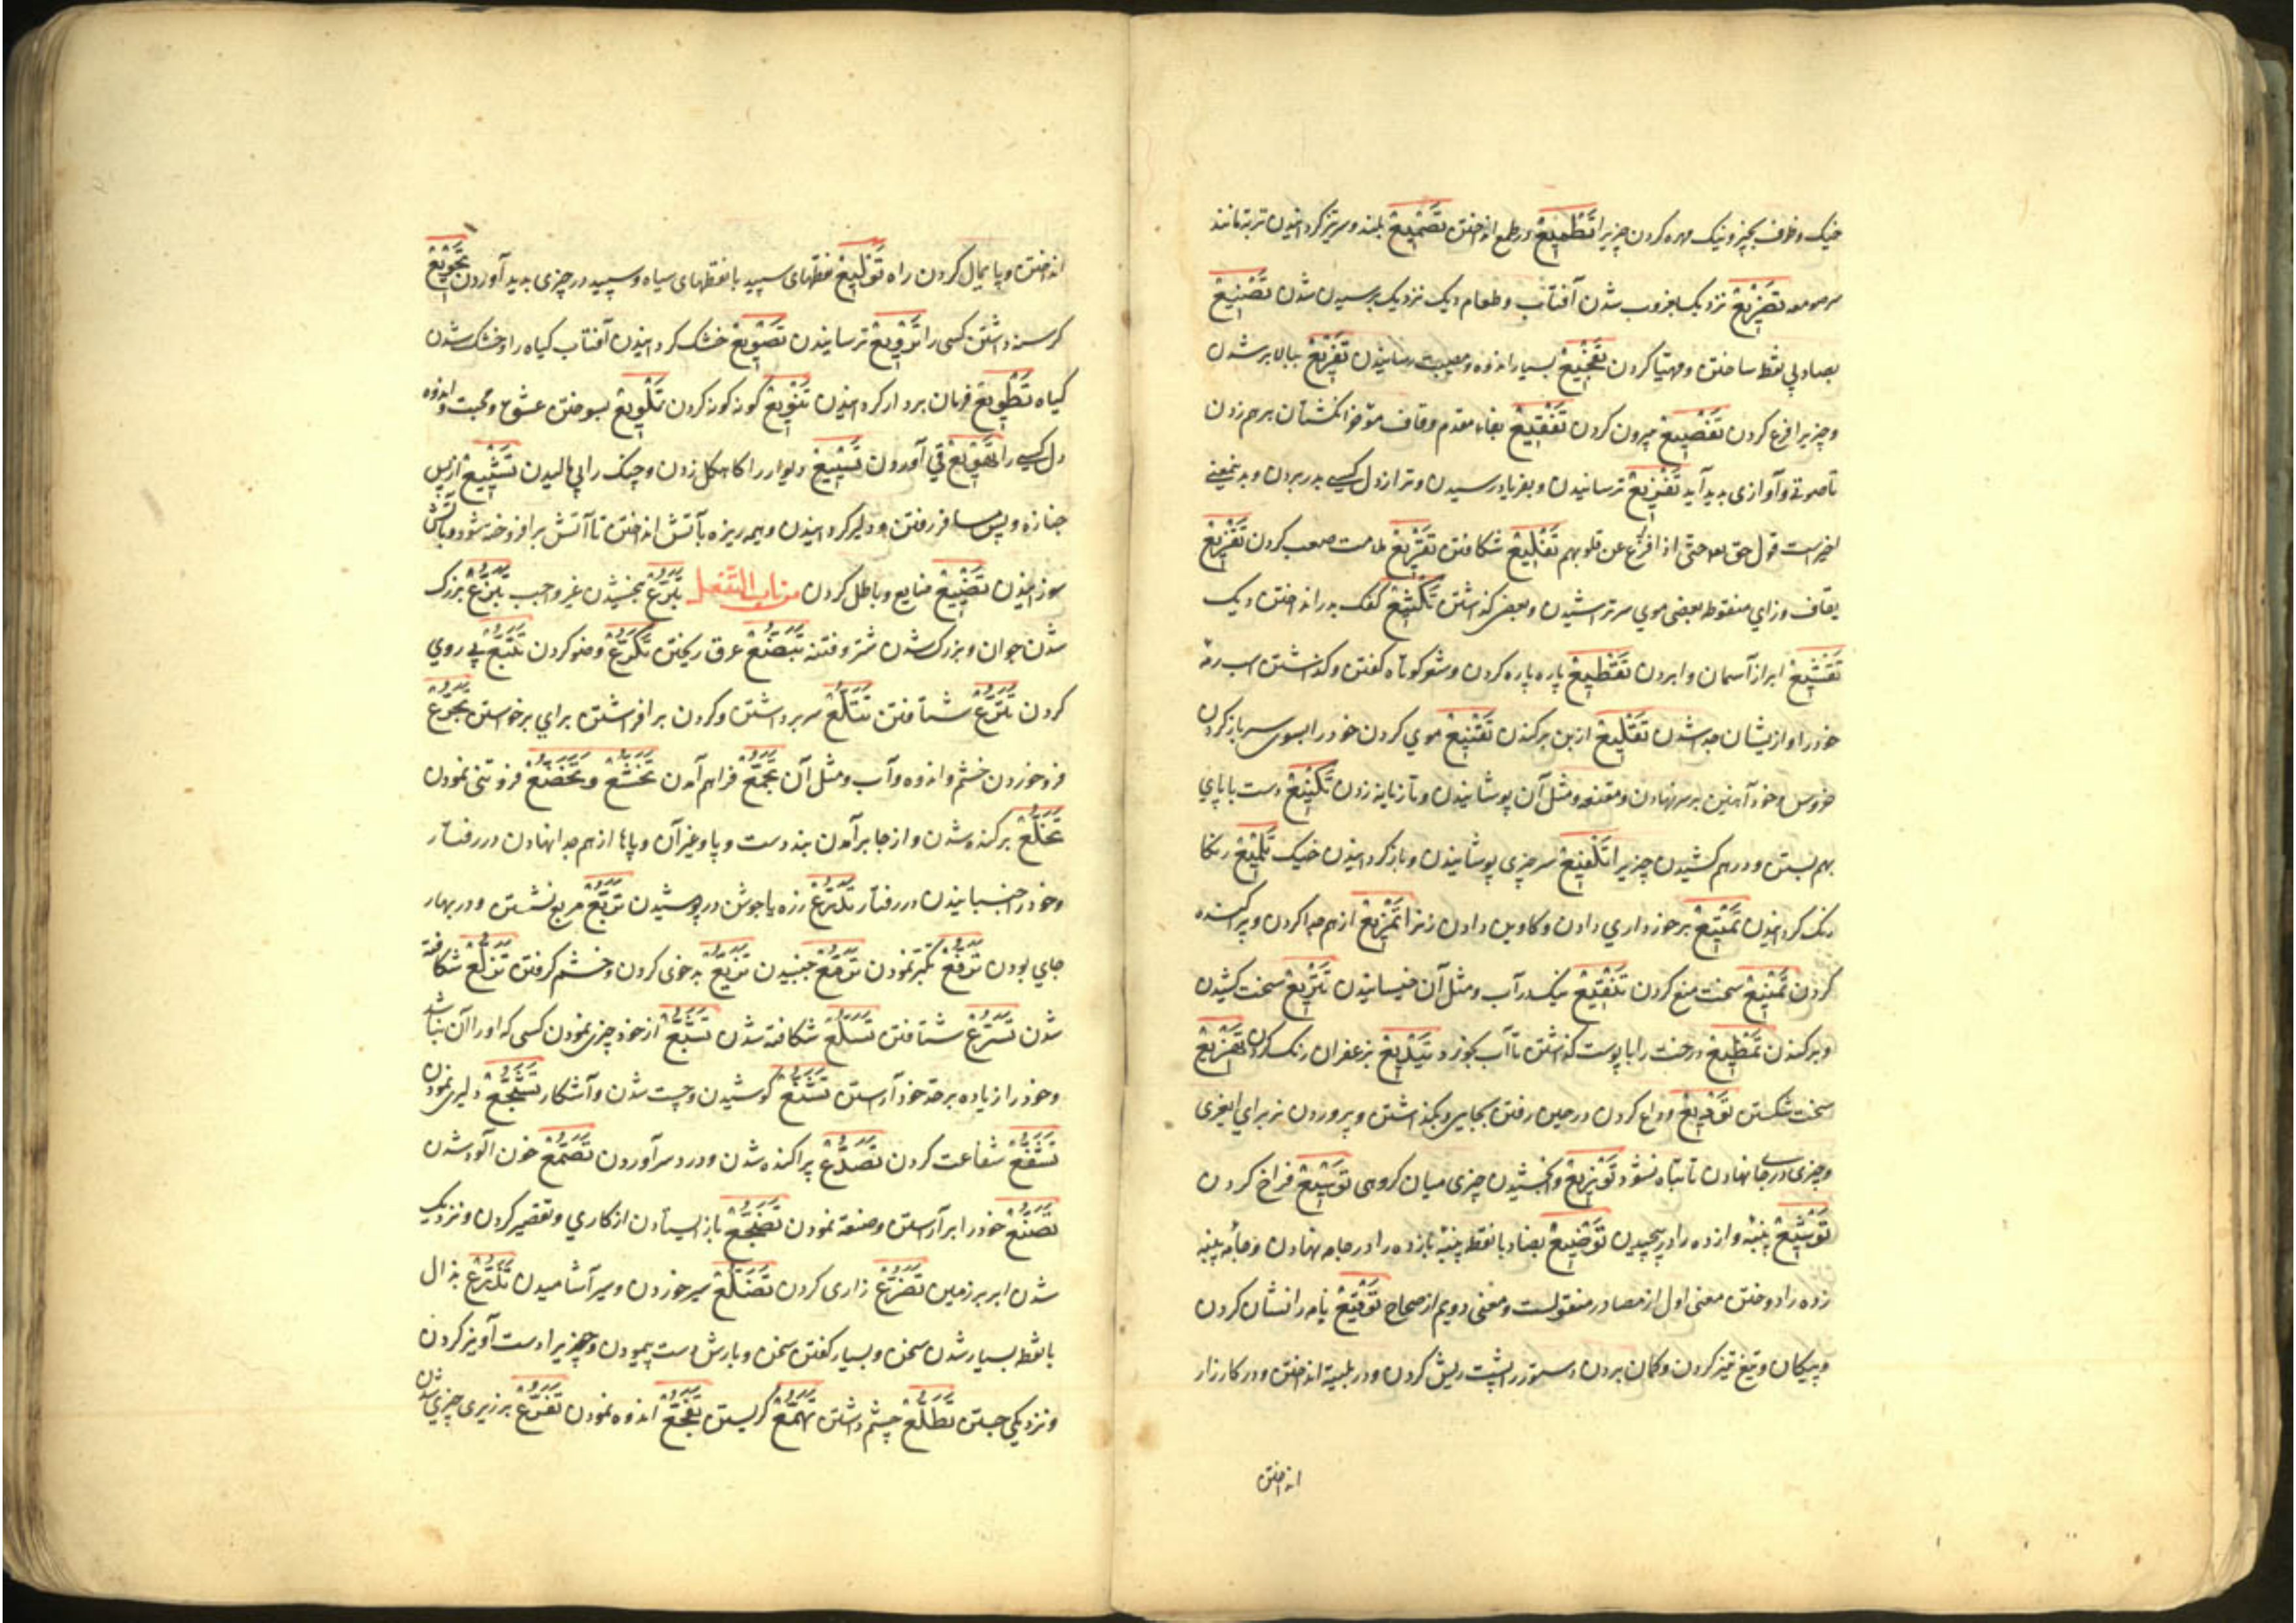 خیک و ظرف بچیز و نیک مهره کردن چیزیرا تَطْمِیعْ در طمع انداختن تَصْمِیعْ بلند و سرتیز کردانیدن تربد مانند
سرمومه تَضْرِیعْ نزدیک بغروب شدن آفتاب و طعام دیک نزدیک برسیدن شدن تَصْنِیعْ
بصاد بی نقط ساختن و مهیّا کردن تَفْجِیعْ بسیار اندوه و مصیبت رسانیدن تَفْرِیعْ ببالا برشدن
و چیزیرا فرع کردن تَفْصِیعْ بیرون کردن تَفْقِیعْ بفاء مقدم و قاف مؤخر انکشتان برهم زدن
تا صوتی و آوازی پدید آید تَفْزِیعْ ترسانیدن و بفریاد رسیدن و ترس از دل کسی بدر بردن و بدین معنی
اخیرست قول حق تعه حتّی اذا فزّع عن قلوبهم تَفْلِیعْ شکافتن تَقْرِیعْ ملامت صعب کردن تَقْزِیعْ
بقاف و زای منقوط بعضی موی سر تراشیدن و بعضی کذاشتن تَکْثِیعْ کفک بدر انداختن دیک
تَقْشِیعْ ابر از آسمان وا بردن تَقْطِیعْ پاره پاره کردن و شعر کوتاه کفتن و کذشتن اسب رمه
خود را و ازیشان جدا شدن تَقْلِیعْ از بن برکندن تَقْنِیعْ موی کردن خود را بسوی سر باز کردن
خروس و خود آهنین بر سر نهادن و مقنعه و مثل آن پوشانیدن و تازیانه زدن تَکْنِیعْ دست با پای
بهم بستن و درهم کشیدن چیزیرا تَلْفِیعْ سر چیزی پوشانیدن و باز کردانیدن خیک تَلْمِیعْ رنکا
رنک کردانیدن تَمْتِیعْ برخورداری دادن و کاوین دادن زنرا تَمْزِیعْ از هم جدا کردن و پراکنده
کردن تَمْنِیعْ سخت منع کردن تَنْقِیعْ نیک در آب و مثل آن خیسانیدن تَنْزِیعْ سخت کشیدن
و برکندن تَمْظِیعْ درخت را با پوست کذاشتن تا آب بخورد تَیْدِیعْ بزعفران رنک کردن تَهْزِیعْ
سخت شکستن تَوْدِیعْ وداع کردن در حین رفتن بجایی و بکذاشتن و پروردن نر برای ایغری
و چیزی در جا نهادن تا تباه نشود تَوْزِیعْ و ابخشیدن چیزی میان کروهی تَوْسِیعْ فراخ کردن
تَوْشِیعْ پنبهٔ وا زده را در پیچیدن تَوْضِیعْ بضاد با نقط پنبهٔ بازده را در جامه نهادن و جامهٔ پنبه
زده را دوختن معنی اول از مصادر منقولست و معنی دویم از صحاح تَوْقِیعْ نامه را نشان کردن
و پیکان و تیغ تیز کردن و کمان بردن و ستور را پشت ریش کردن و در بلیّه انداختن و در کارزار
انداختن
انداختن و پایمال کردن راه تَوْلِیعْ نقطهای سپید با نقطهای سیاه و سپید در چیزی پدید آوردن تَجْوِیعْ
کرسنه داشتن کسی را تَرْوِیعْ ترسانیدن تَصْوِیعْ خشک کردانیدن آفتاب کیاه را و خشک شدن
کیاه تَطْوِیعْ فرمان بردار کردانیدن تَنْوِیعْ کونه کونه کردن تَلْوِیعْ بسوختن عشق و محبت و اندوه
دل کسی را تَهْوِیعْ قی آوردن تَسْیِیعْ دیوار را کاهکل زدن و چنک را پی مالیدن تَشْیِیعْ از پس
جنازه و پس مسافر رفتن و دلیر کردانیدن و هیمه ریزه بآتش انداختن تا آتش برافروخته شود و بآتش
سوزانیدن تَضْیِیعْ ضایع و باطل کردن من باب التّفعل تَبَرُّعْ بخشیدن غیر واجب تَبَزُّعْ بزرک
شدن جوان و بزرک شدن شرّ و فتنه تَبَصُّعْ عرق ریختن تَکَرُّعْ وضو کردن تَتَبُّعْ پی روی
کردن تَتَرُّعْ شتافتن تَتَلُّعْ سر برداشتن و کردن برافراشتن برای برخواستن تَجَرُّعْ
فرو خوردن خشم و اندوه و آب و مثل آن تَجَمُّعْ فراهم آمدن تَخَشُّعْ و تَخَضُّعْ فروتنی نمودن
تَخَلُّعْ برکنده شدن و از جا برآمدن بند دست و پا و غیر آن و پاها از هم جدا نهادن در رفتار
و خود را جنبانیدن در رفتار تَدَرُّعْ زره یا جوشن در پوشیدن تَرَبُّعْ مربع نشستن و در بهار
جای بودن تَرَفُّعْ تکبّر نمودن تَرَمُّعْ جنبیدن تَزَبُّعْ بدخوی کردن و خشم کرفتن تَزَلُّعْ شکافته
شدن تَسَرُّعْ شتافتن تَسَلُّعْ شکافته شدن تَشَبُّعْ از خود چیزی نمودن کسی که او را آن نباشد
و خود را زیاده بر حدّ خود آراستن تَشَنُّعْ کوشیدن و چست شدن و آشکار تَشَجُّعْ دلیری نمودن
تَشَفُّعْ شفاعت کردن تَصَدُّعْ پراکنده شدن و درد سر آوردن تَصَمُّعْ خون آلود شدن
تَصَنُّعْ خود را برآراستن و صنعة نمودن تَضَجُّعْ باز ایستادن از کاری و تقصیر کردن و نزدیک
شدن ابر بر زمین تَضَرُّعْ زاری کردن تَضَلُّعْ سیر خوردن و سیر آشامیدن تَذَرُّعْ بذال
با نقط بسیار شدن سخن و بسیار کفتن سخن و بارش دست پیمودن و چیزیرا دست آویز کردن
و نزدیکی جستن تَطَلُّعْ چشم داشتن تَهَمُّعْ کریستن تَفَجُّعْ اندوه نمودن تَفَرُّعْ بر زبری چیزی شدن